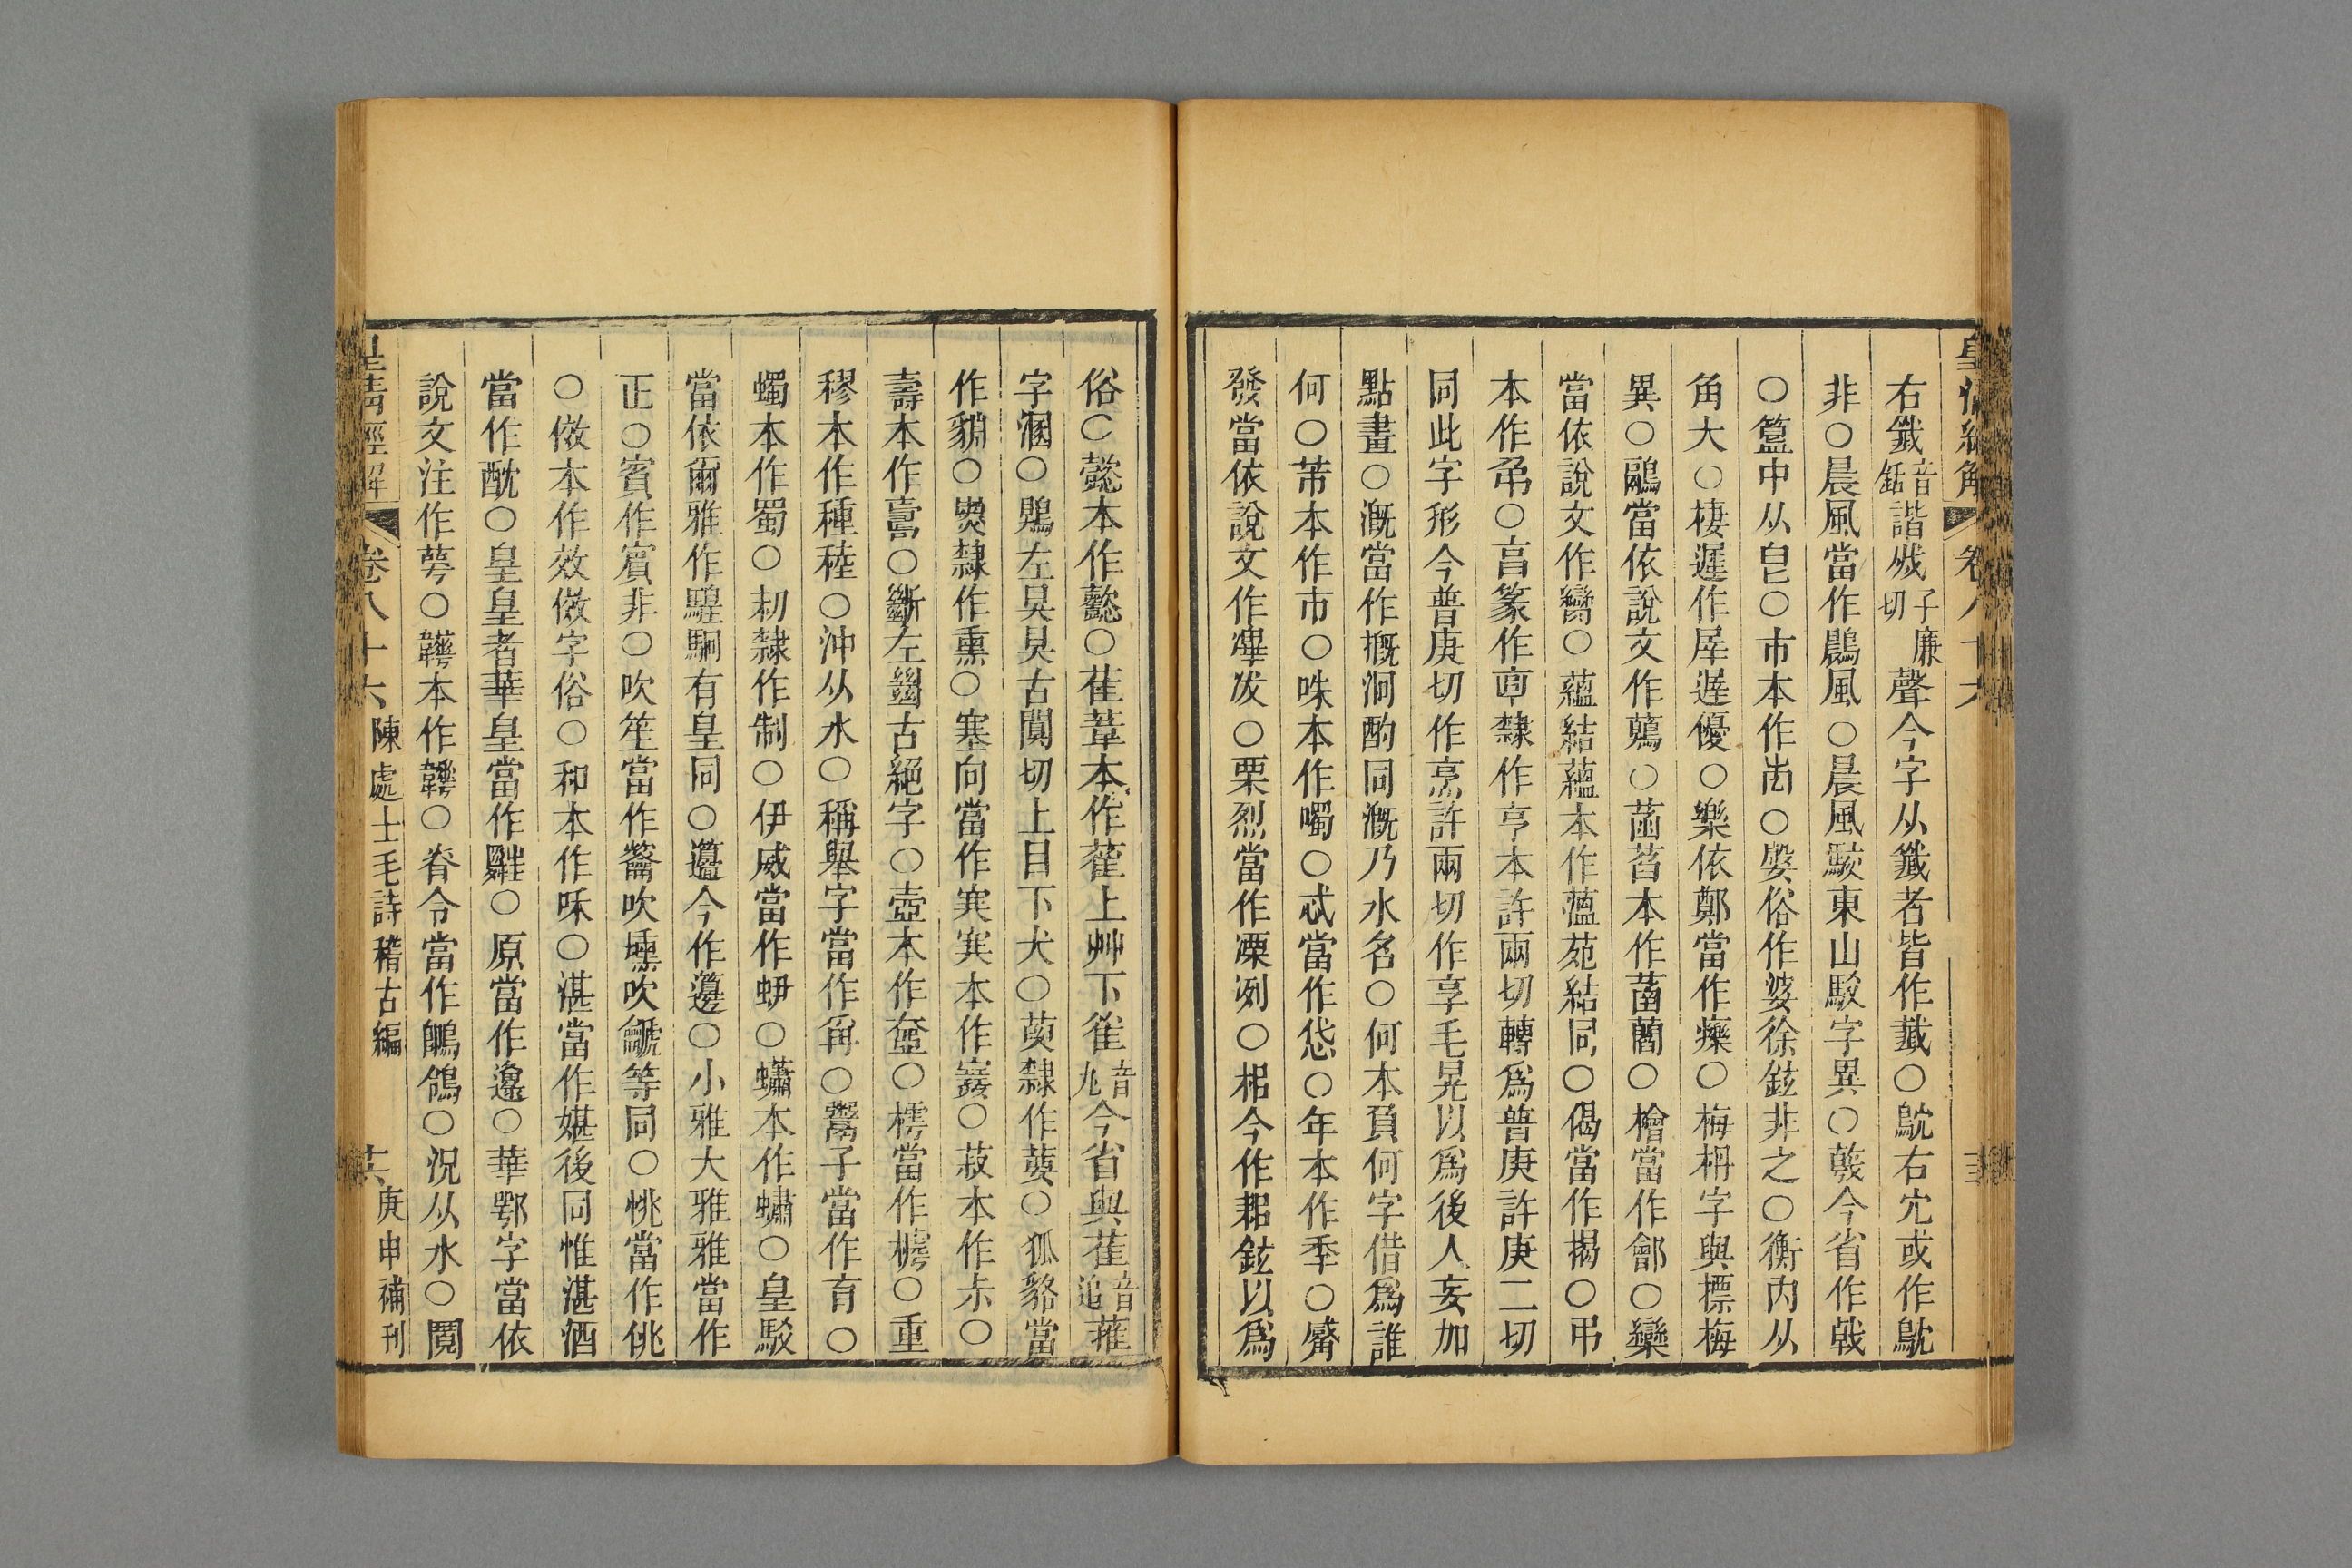 皇清經解 卷八十六
右韱音銛諧𢦏子廉切聲今字从韱者皆作䉤○鴥右穴或作鴥
非○晨風當作鷐風○晨風駮東山駁字異○羛今省作戟
○簋中从皀○市本作㞢○媻俗作婆徐鉉非之○衡內从
角大○棲遲作屖遲優○樂依鄭當作㿋○梅枏字與標梅
異○鷊當依說文作鷊○菡萏本作菡䕑○檜當作鄶○欒
當依說文作臠○蘊結蘊本作薀苑結同○偈當作揭○弔
本作𢎨○亯篆作𠅠隸作亨本許兩切轉為普庚許庚二切
同此字形今普庚切作烹許兩切作享毛晃以為後人妄加
點畫○溉當作摡泂酌同溉乃水名○何本負何字借為誰
何○芾本作市○咮本作噣○忒當作㥾○年本作秊○觱
發當依說文作滭犮○栗烈當作凓冽○耜今作耜鉉以為
俗○懿本作懿○萑葦本作雚上艸下隹音丸今省與萑音追蓷
字溷○鵙左狊狊古闃切上目下犬○葽隸作葽○狐貉當
作貈○熏隸作熏○塞向當作𡫳𡫳本作𡫳○菽本作尗○
壽本作𠷎○斷左𢇍古絕字○壺本作壺○樗當作樗○重
穋本作種稑○沖从水○稱舉字當作爯○鬻子當作育○
蠋本作蜀○制隸作制○伊威當作蛜○蠨本作蟰○皇駁
當依爾雅作騜駉有皇同○籩今作籩○小雅大雅雅當作
正○賓作賔非○吹笙當作龡吹壎吹篪等同○恌當作佻
○傚本作效傚字俗○和本作咊○湛當作媅後同惟湛酒
當作酖○皇皇者華皇當作䠵○原當作邍○華鄂字當依
說文注作萼○韡本作韡○脊令當作䳭鴒○況从水○鬩
皇清經解 卷八十六 陳處士毛詩稽古編 共 庚申補刊